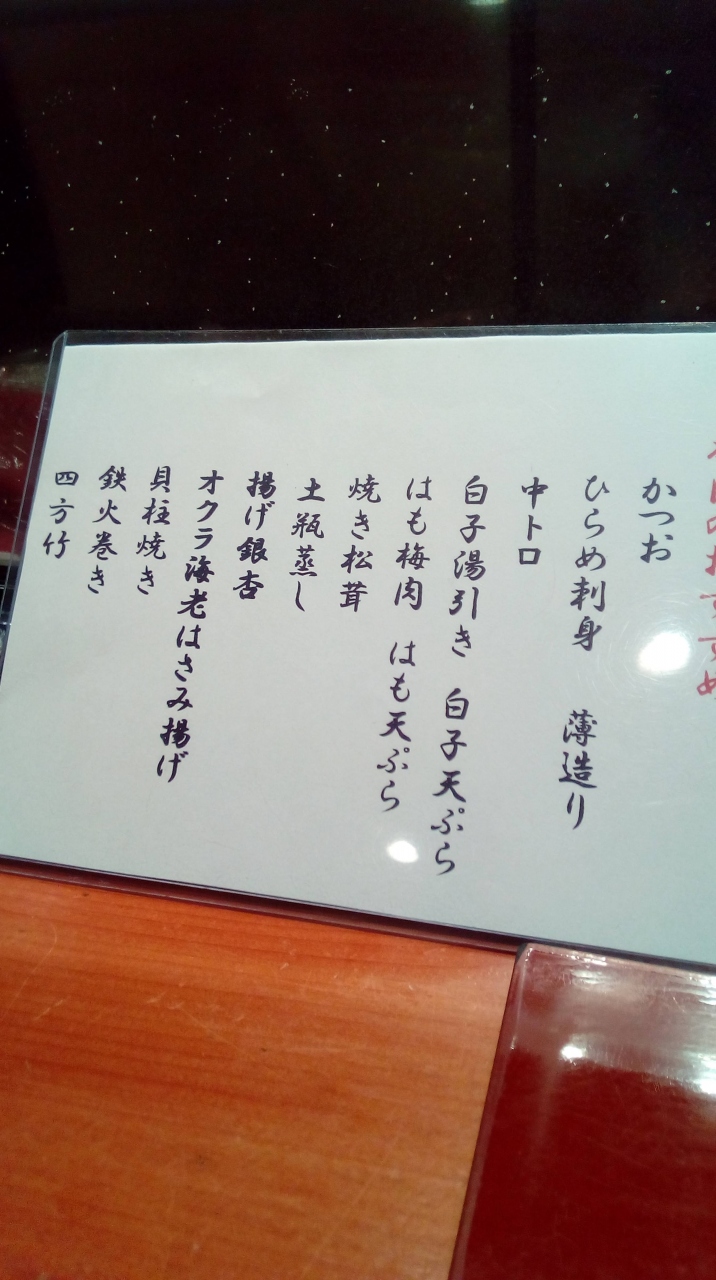 のおすすめ
かつお
ひらめ刺身 薄造り
中トロ
白子湯引き 白子天ぷら
はも梅肉 はも天ぷら
焼き松茸
土瓶蒸し
揚げ銀杏
オクラ海老はさみ揚げ
貝柱焼き
鉄火巻き
四方竹